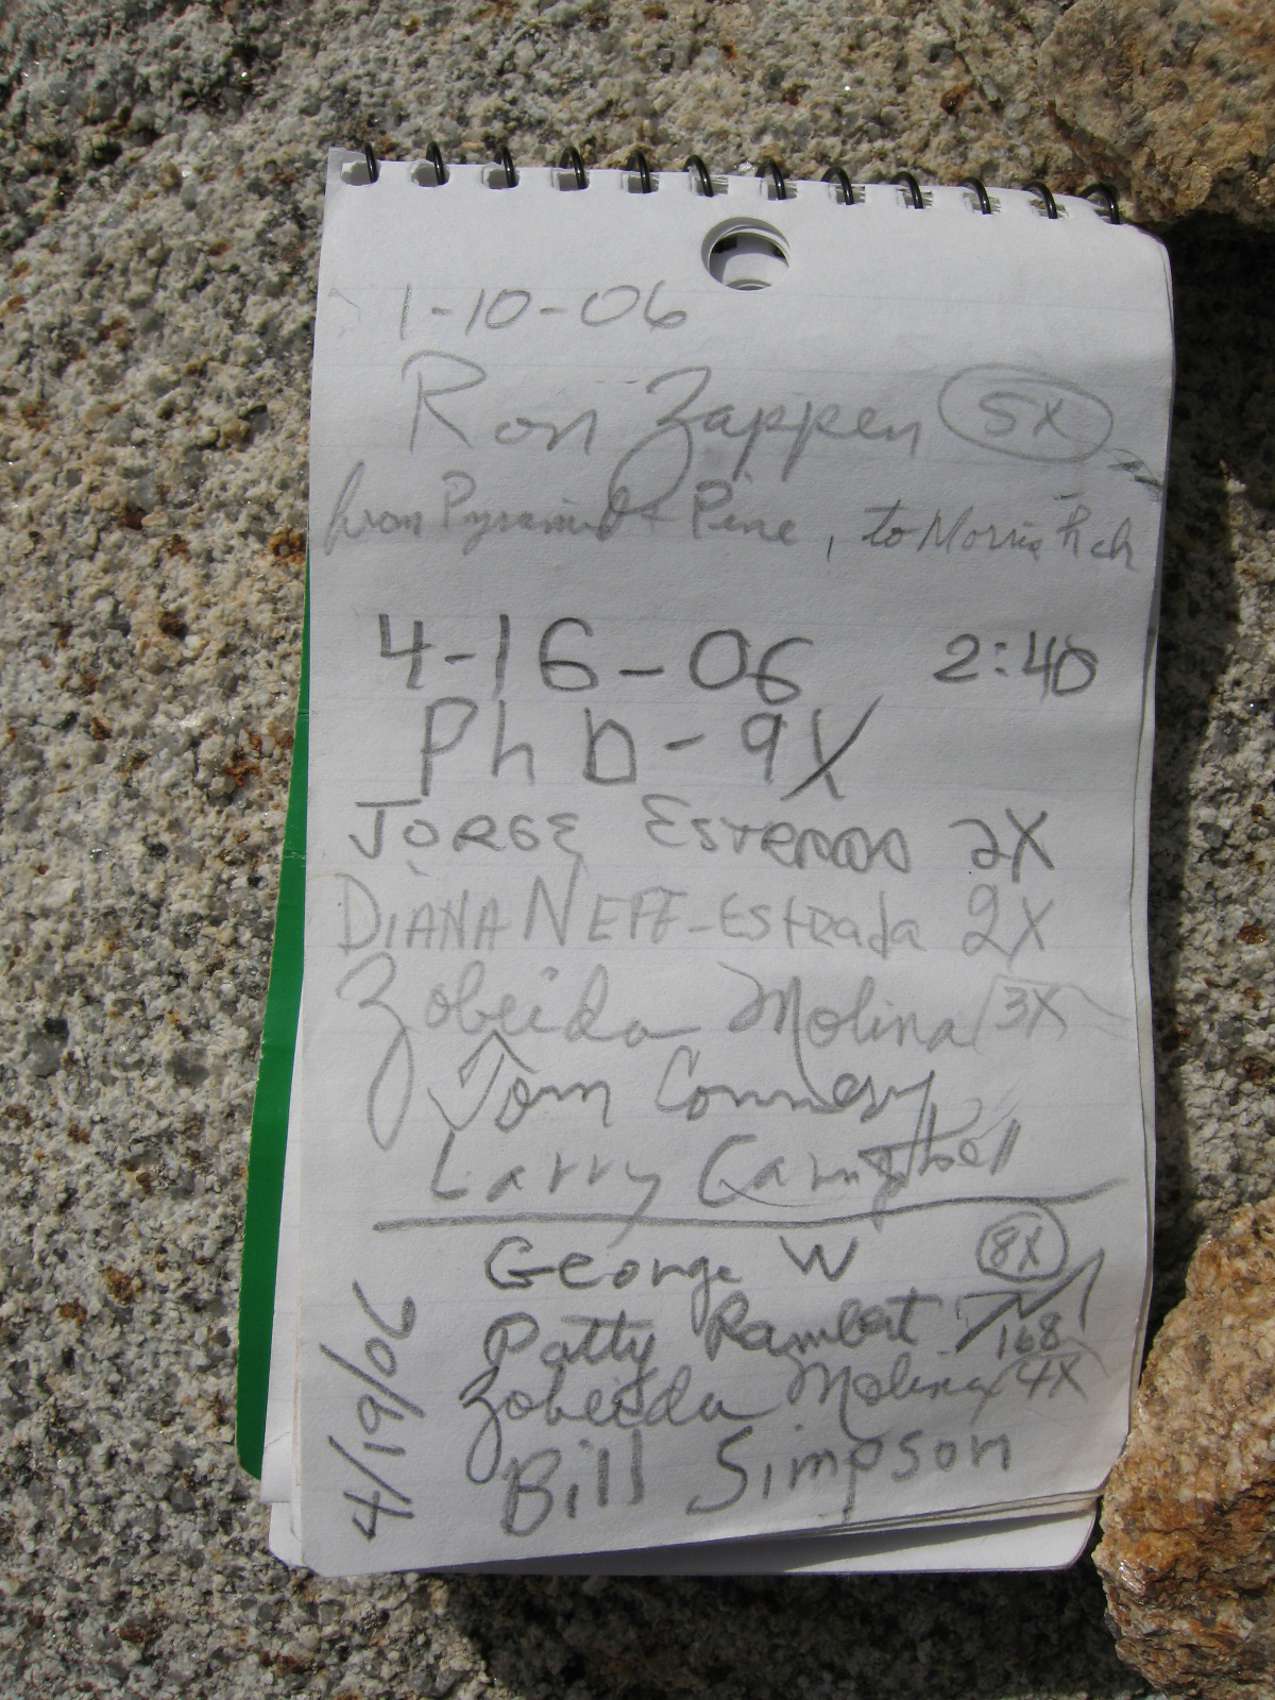 1-10-06
Ron Zappen 5X
from Pyramid + Pine, to Morris Rch
4-16-06 2:40
Ph D - 9X
JORGE ESTRADA 2X
DiANA NEFF-EstRada 2X
Zobeida Molina 3X
Tom Connery
Larry Campbell
George W 8X
Patty Rambert 168
Zobeida Molina 4X
Bill Simpson
4/19/06